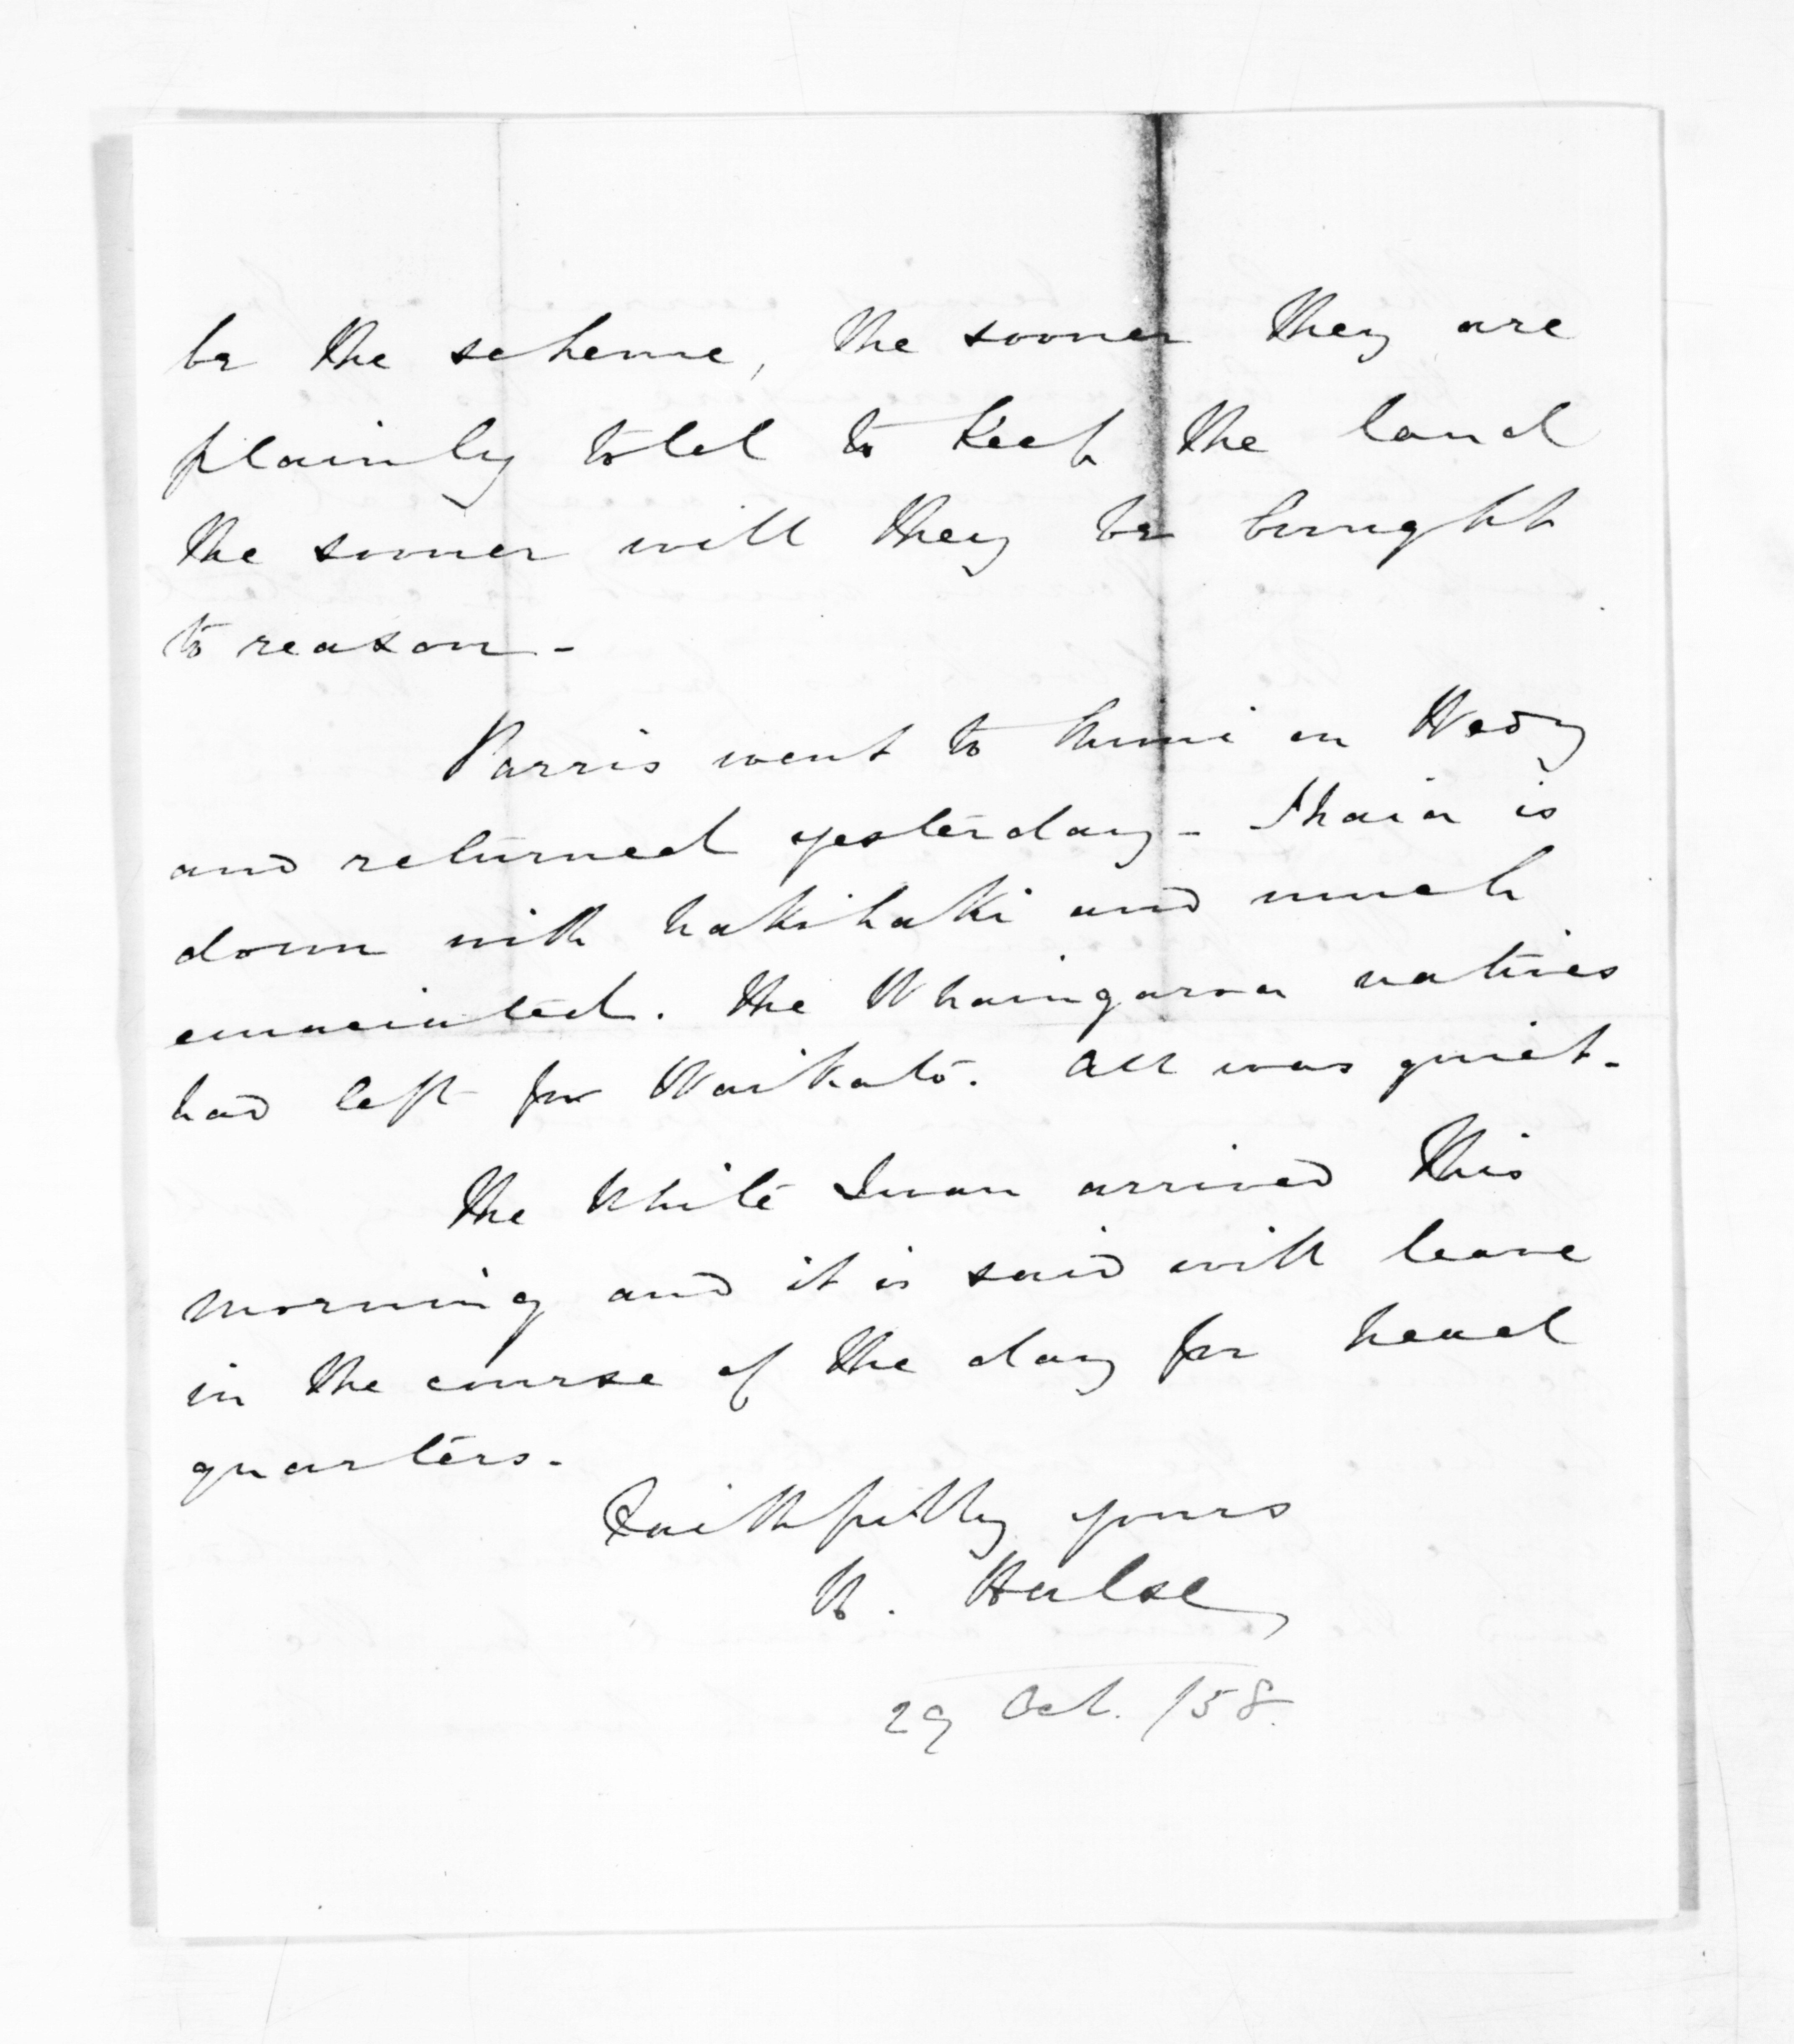 be the scheme, the sooner they are
plainly told to keep the land
the sooner will they be bought
to reason -
Parris went to Mimi on Wedy
and returned yesterday - Ihaia is
down with hakihaki and much
emaciated. The Whaingaroa natives
had left for Waikato. All was quiet -
The White Swan arrived this
morning and it is said will leave
in the course of the day for head
quarters -
Faithfully yours
H. Halse
29 Oct. /58.